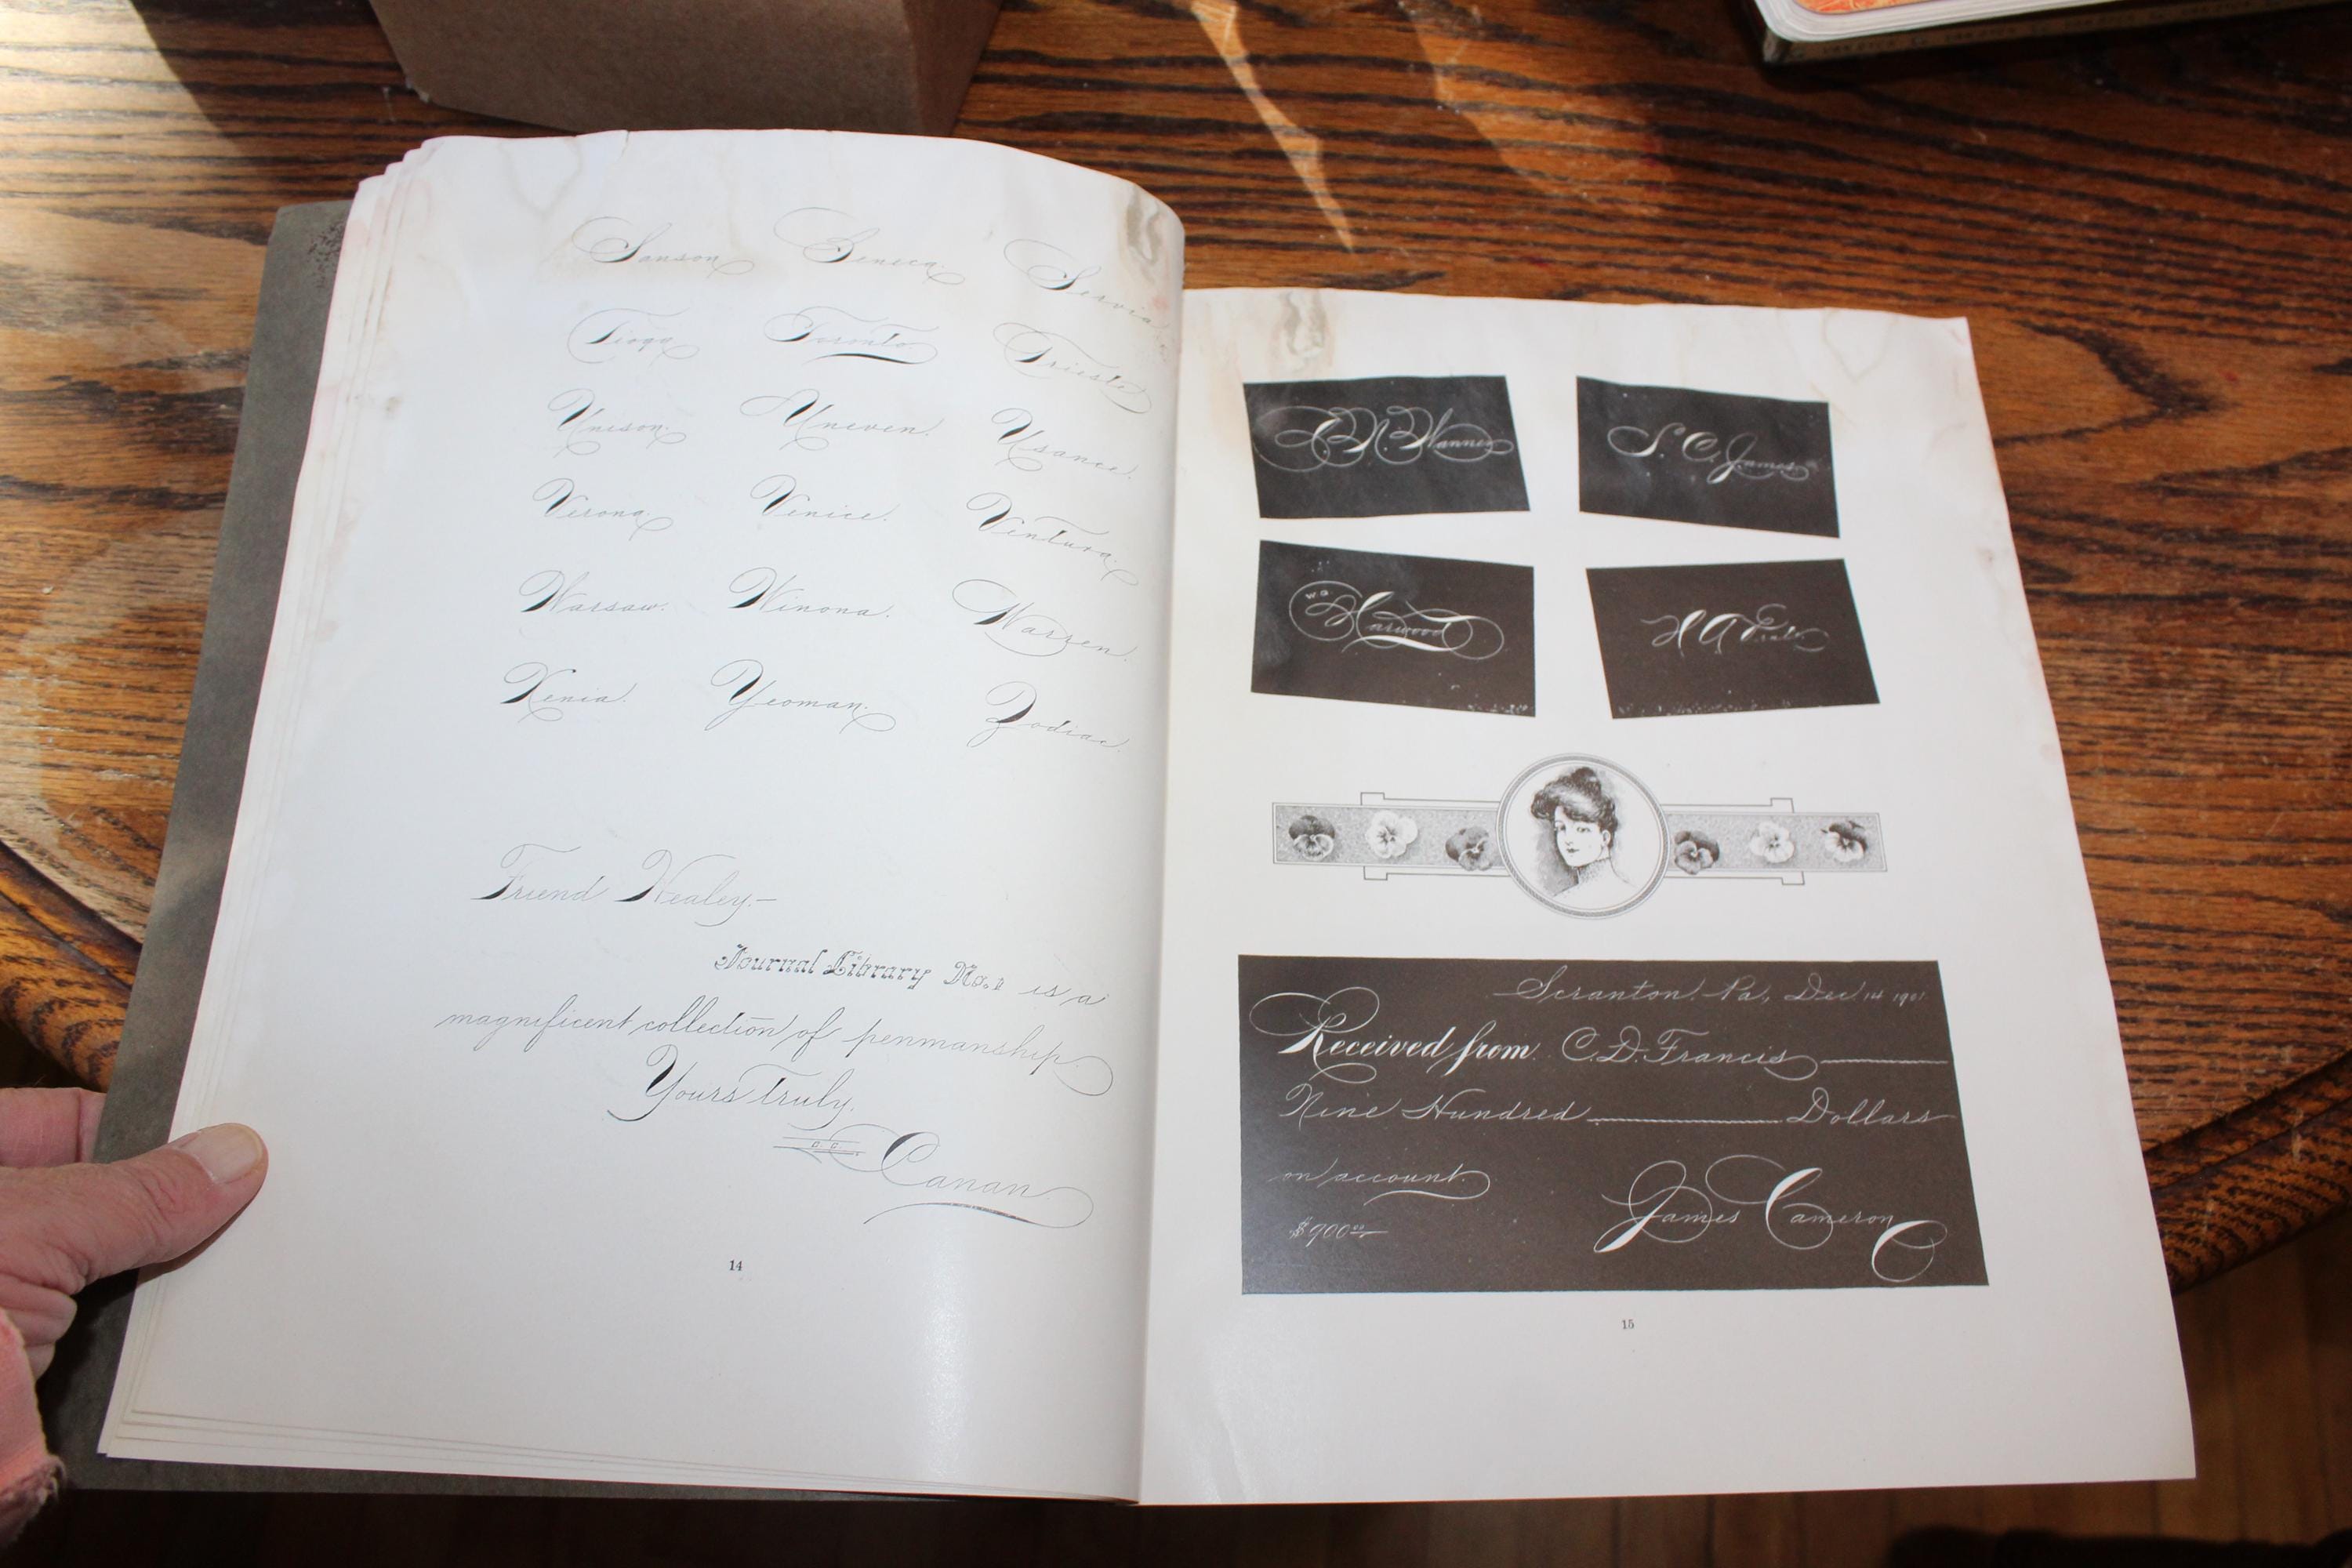 Sanson Seneca. Servia
Tioga Toronto Trieste
Unison. Uneven. Usance.
Verona. Venice. Ventura.
Warsaw. Winona. Warren.
Xenia. Yeoman. Zodiac.
Friend Healey.—
Journal Library No. 1 is a
magnificent collection of penmanship.
Yours truly,
C. C. Canan
14
S. C. James
W. a. Harwood
Scranton, Pa, Dec 14 1901
Received from C. D. Francis
Nine Hundred Dollars
on account.
$900 00
James Cameron
15